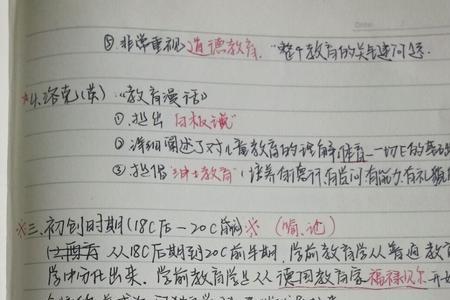 ⑤ 非常重视道德教育，“整个教育的关键问题.
*4.洛克(英)《教育漫话》
① 提出“白板说”
② 详细阐述了对儿童教育的 体育 一切
③ 提倡“绅士教育”(培养有德行、有学问有能力有礼貌
※三.初创时期(18C后—20C前)※ (简、论)
从18C后期到20C前半期，学前教育学从普通教育
学中分化出来. 学前教育学是从德国教育家福禄贝尔开